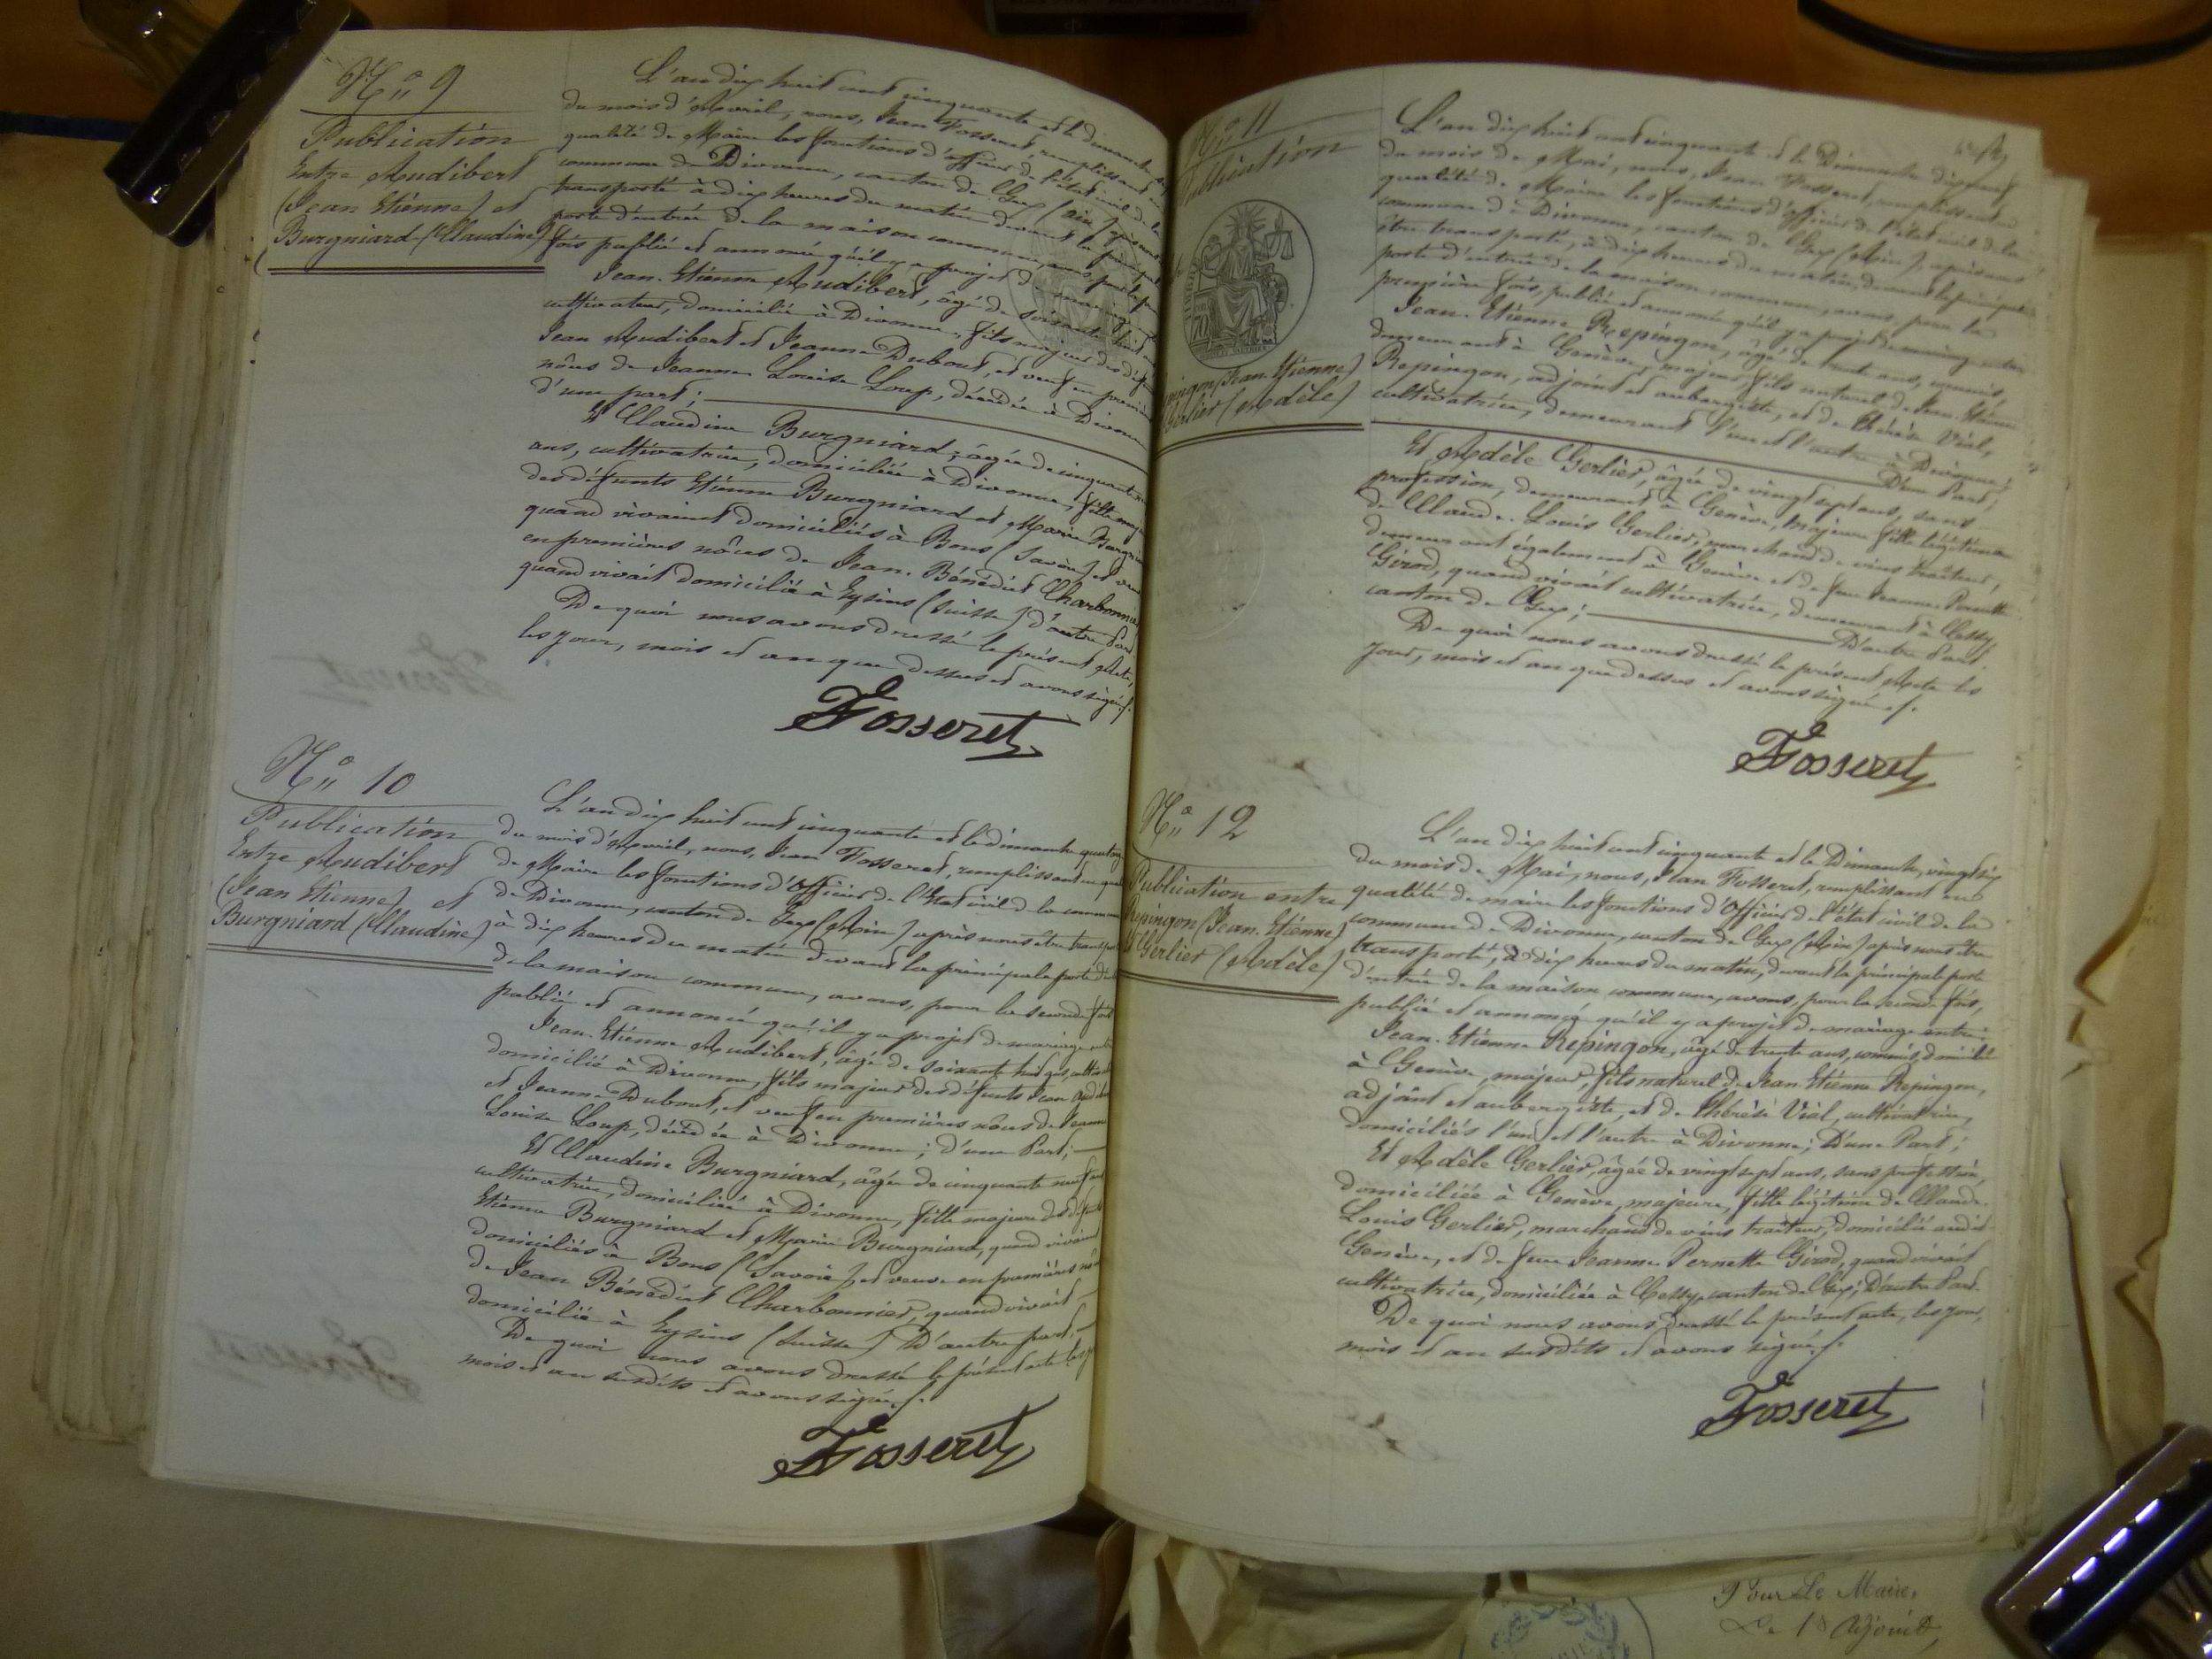 N.o 9
Publication
Entre Audibert
(Jean Etienne) et
Burgniard (Claudine)
L'an dix huit cent cinquante et le dimanche
du mois d'Avril, nous, Jean Fosseret, remplissant en
qualité de Maire les fonctions d'officier de l'état civil de la
commune de Divonne, canton de Gex (Ain) après nous
transporté à dix heures du matin devant la principale
porte d'entrée de la maison commune, avons pour la
fois publié et annoncé qu'il y a projet de mariage
Jean-Etienne Audibert, âgé de soixante huit ans
cultivateur, domicilié à Divonne, fils majeur des défunts
Jean Audibert et Jeanne Dubout, et veuf en premières
nôces de Jeanne Louise Loup, décédée à Divonne
d'une part;
Et Claudine Burgniard, âgée de cinquante neuf
ans, cultivatrice, domiciliée à Divonne, fille majeure
des défunts Etienne Burgniard et Marie Burgniard
quand vivaient domiciliés à Bons (Savoie) et veuve
en premières nôces de Jean-Bénédict Charbonnier
quand vivait domicilié à Eysins (Suisse) d'autre Part
De quoi nous avons dressé le présent Acte,
les jour, mois et an que dessus et avons signé./.
Fosseret
N.o 10
Publication
Entre Audibert
(Jean Etienne) et
Burgniard (Claudine)
L'an dix huit cent cinquante et le dimanche quatorze
du mois d'Avril, nous, Jean Fosseret, remplissant en qualité
de Maire les fonctions d'Officier de l'Etat civil de la commune
de Divonne, canton de Gex (Ain) après nous être transporté
à dix heures du matin devant la principale porte d'entrée
de la maison commune, avons, pour la seconde fois
publié et annoncé qu'il y a projet de mariage entre
Jean-Etienne Audibert, âgé de soixante huit ans, cultivateur
domicilié à Divonne, fils majeur des défunts Jean Audibert
et Jeanne Dubout, et veuf en premières nôces de Jeanne
Louise Loup, décédée à Divonne; d'une Part;
Et Claudine Burgniard, âgée de cinquante neuf ans
cultivatrice, domiciliée à Divonne, fille majeure des défunts
Etienne Burgniard et Marie Burgniard, quand vivaient
domiciliés à Bons (Savoie) et veuve en premières nôces
de Jean Bénédict Charbonnier, quand vivait
domicilié à Eysins (Suisse) D'autre part,
De quoi nous avons dressé le présent acte les jour
mois et an susdits et avons signé./.
Fosseret
N.o 11
Publication
Repingon (Jean-Etienne)
Gerlier (Adèle)
L'an dix huit cent cinquante et le Dimanche dix neuf
du mois de Mai, nous, Jean Fosseret, remplissant en
qualité de Maire les fonctions d'officier de l'état civil de la
commune de Divonne, canton de Gex (Ain) après nous
être transporté, à dix heures du matin, devant la principale
porte d'entrée de la maison commune, avons, pour la
première fois, publié et annoncé qu'il y a projet de mariage entre
Jean-Etienne Repingon, âgé de trente ans, commis,
demeurant à Genève, majeur, fils naturel de Jean-Etienne
Repingon, adjoint et aubergiste, et de Thérèse Vial,
cultivatrice, demeurant l'un et l'autre à Divonne;
D'une Part;
Et Adèle Gerlier, âgée de vingt sept ans, sans
profession, demeurant à Genève, majeure, fille légitime
de Claude-Louis Gerlier, marchand de vins traiteur,
demeurant également à Genève et de feue Jeanne Pernette
Girod, quand vivait cultivatrice, demeurant à Cessy
canton de Gex;
D'autre Part.
De quoi nous avons dressé le présent Acte les
jour, mois et an que dessus et avons signé./.
Fosseret
N.o 12
Publication entre
Repingon (Jean-Etienne)
Et Gerlier (Adèle)
L'an dix huit cent cinquante et le Dimanche, vingt six
du mois de Mai, nous, Jean Fosseret, remplissant en
qualité de maire les fonctions d'Officier de l'état civil de la
commune de Divonne, canton de Gex (Ain) après nous être
transporté, à dix heures du matin, devant la principale porte
d'entrée de la maison commune, avons, pour la seconde fois,
publié et annoncé qu'il y a projet de mariage entre:
Jean-Etienne Repingon, âgé de trente ans, commis, domicilié
à Genève, majeur, fils naturel de Jean-Etienne Repingon,
adjoint et aubergiste, et de Thérèse Vial, cultivatrice,
domiciliés l'un et l'autre à Divonne; D'une Part;
Et Adèle Gerlier, âgée de vingt sept ans, sans profession,
domiciliée à Genève, majeure, fille légitime de Claude-
Louis Gerlier, marchand de vins traiteur, domicilié audit
Genève, et de feue Jeanne Pernette Girod, quand vivait
cultivatrice, domiciliée à Cessy, canton de Gex; D'autre Part.
De quoi nous avons dressé le présent acte, les jour,
mois et an susdits et avons signé./.
Fosseret
Pour Le Maire,
Le 1er Adjoint,